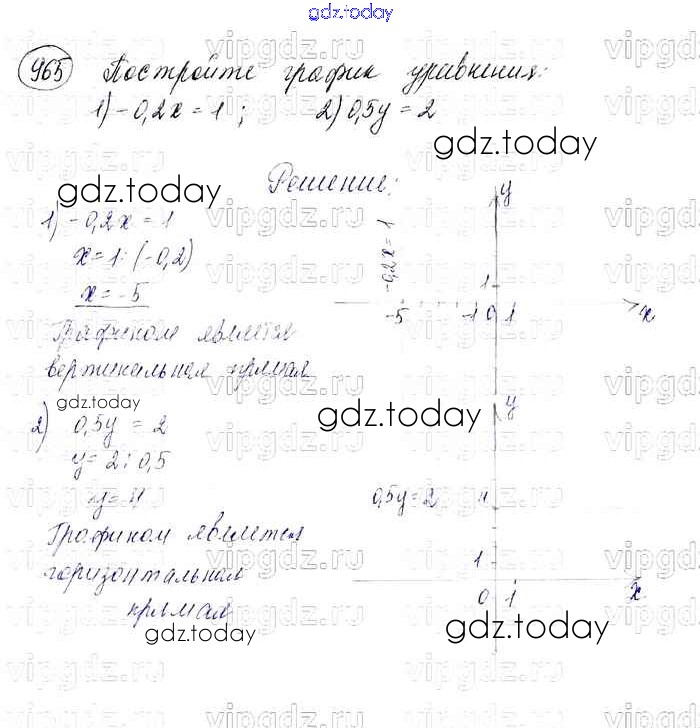 gdz.today
965 Постройте график уравнения:
1) -0,2x = 1 ; 2) 0,5y = 2
gdz.today
Решение:
gdz.today
1) -0,2x = 1
x = 1 : (-0,2)
x = -5
Графиком является
вертикальная прямая
-0,2x = 1
y
1
-5 -1 0 1 x
gdz.today
2) 0,5y = 2
y = 2 : 0,5
y = 4
Графиком является
горизонтальная
прямая
gdz.today
gdz.today
y
0,5y = 2 4
1
0 1 x
gdz.today
vipgdz.ru